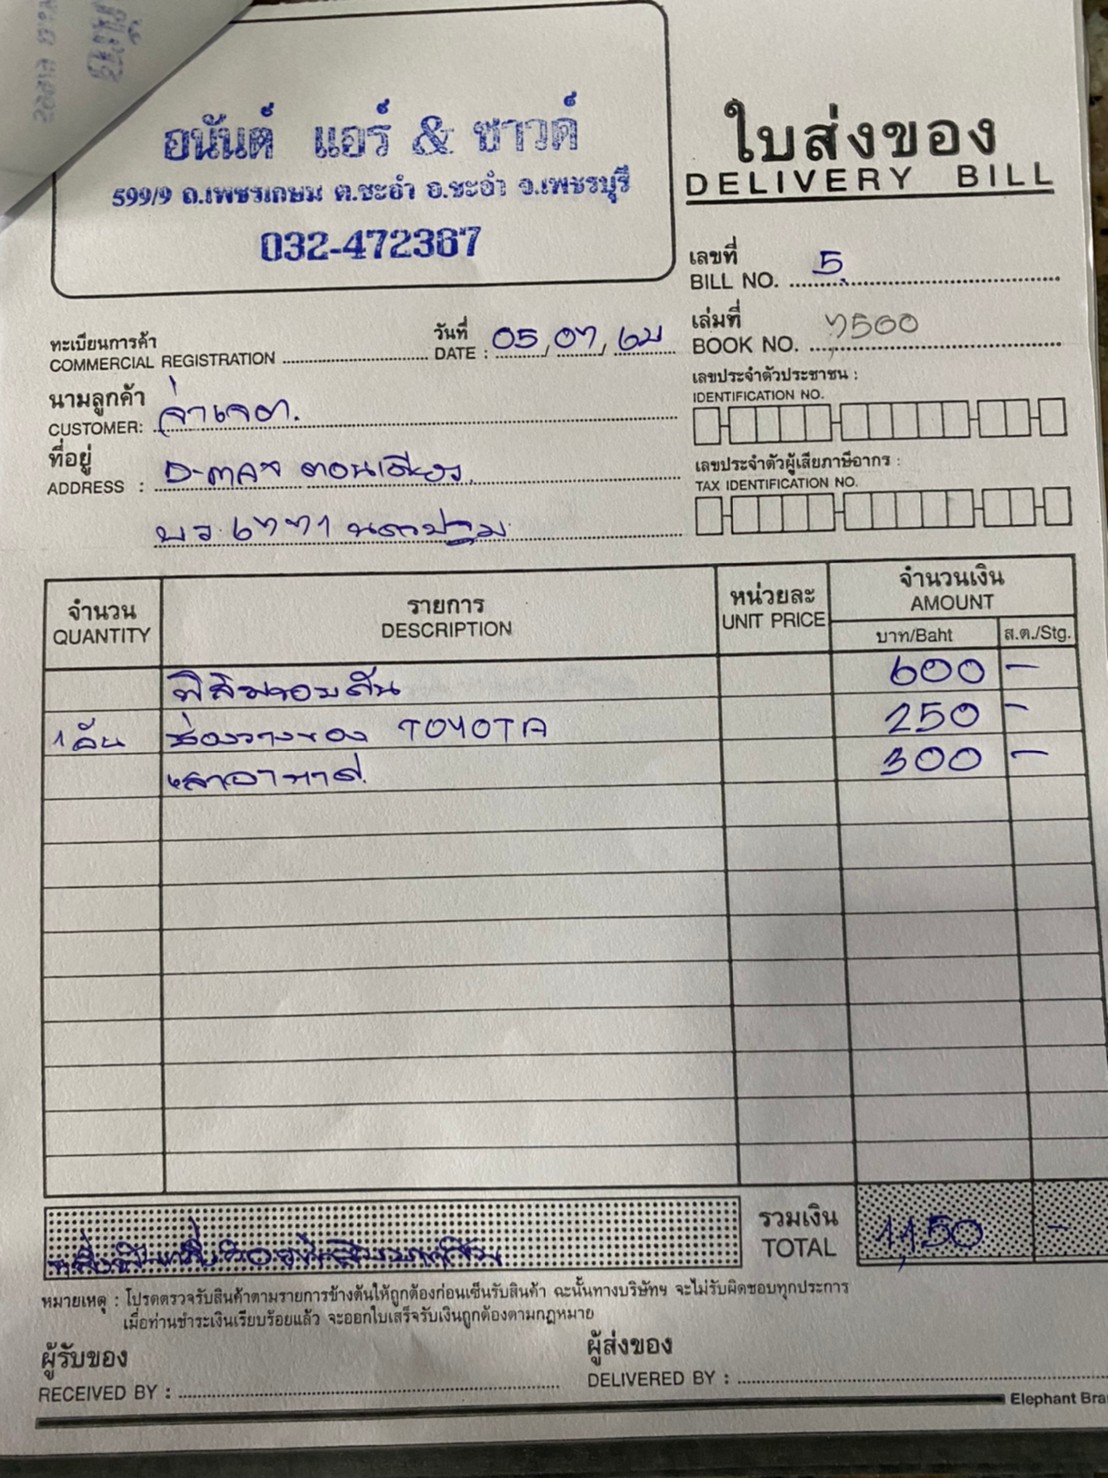 อนันต์ แอร์ & ซาวด์
599/9 ถ.เพชรเกษม ต.ชะอำ อ.ชะอำ จ.เพชรบุรี
032-472367
ใบส่งของ
DELIVERY BILL
เลขที่
BILL NO. 5
เล่มที่
BOOK NO. 7500
ทะเบียนการค้า
COMMERCIAL REGISTRATION
วันที่
DATE : 05, 07,
เลขประจำตัวประชาชน :
IDENTIFICATION NO.
นามลูกค้า
CUSTOMER: จ่าเจต.
ที่อยู่
ADDRESS :
เลขประจำตัวผู้เสียภาษีอากร :
TAX IDENTIFICATION NO.
จำนวน
QUANTITY
รายการ
DESCRIPTION
หน่วยละ
UNIT PRICE
จำนวนเงิน
AMOUNT
บาท/Baht ส.ต./Stg.
ฟิล์มรอบคัน 600 -
1 คัน ช่องวางของ TOYOTA 250 -
เสาอากาศ 300 -
รวมเงิน
TOTAL 1,150 -
หมายเหตุ : โปรดตรวจรับสินค้าตามรายการข้างต้นให้ถูกต้องก่อนเซ็นรับสินค้า ฉะนั้นทางบริษัทฯ จะไม่รับผิดชอบทุกประการ
เมื่อท่านชำระเงินเรียบร้อยแล้ว จะออกใบเสร็จรับเงินถูกต้องตามกฎหมาย
ผู้รับของ
RECEIVED BY :
ผู้ส่งของ
DELIVERED BY :
Elephant Bra